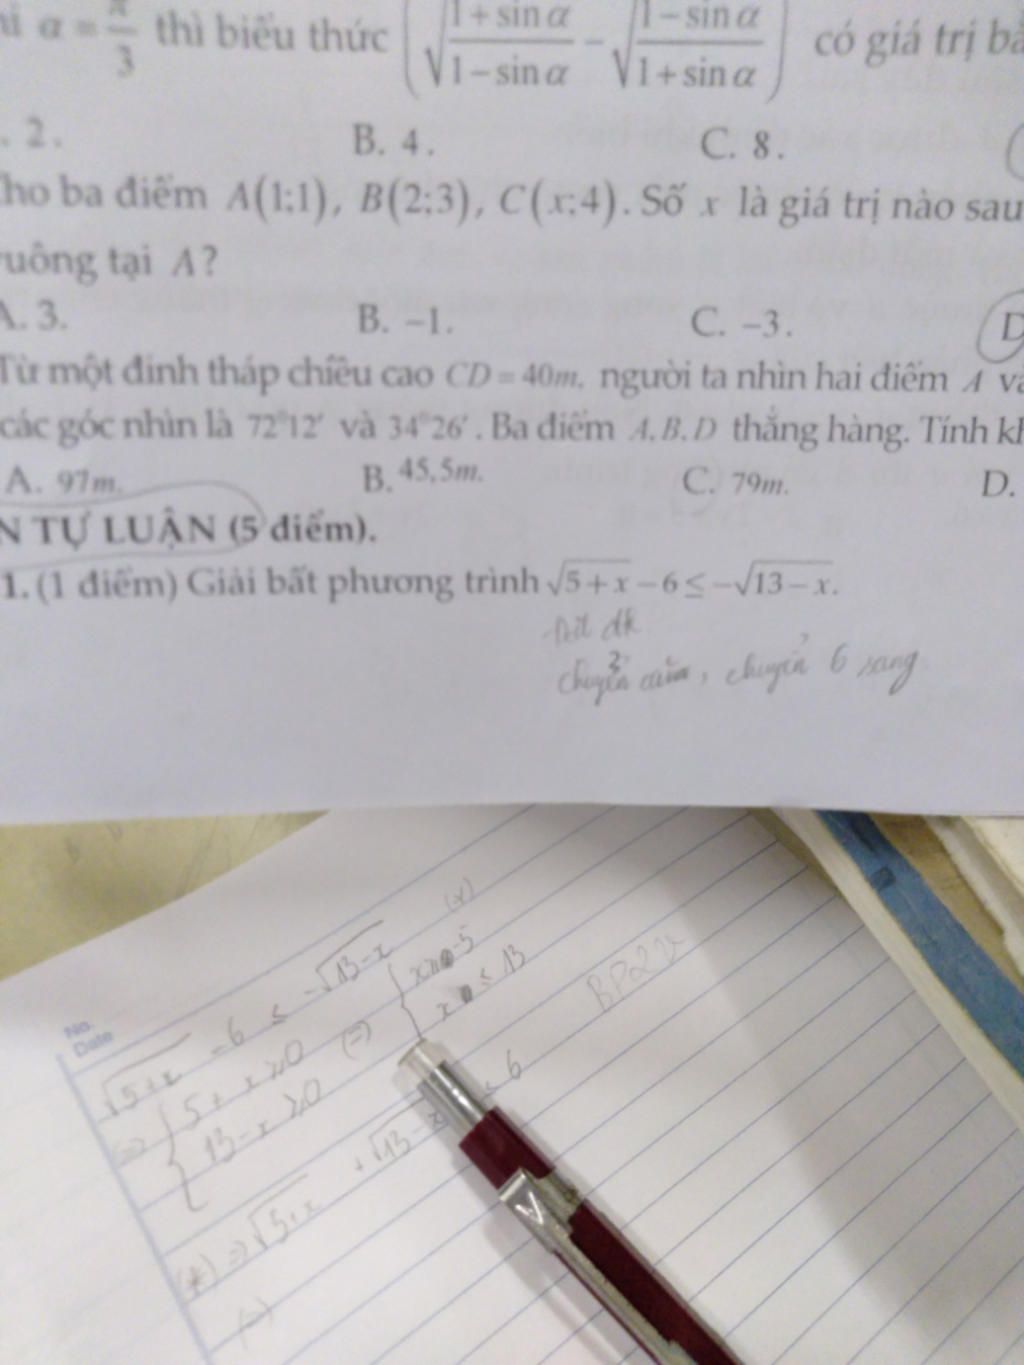 α = π/3 thì biểu thức (√((1+sin α)/(1−sin α)) − √((1−sin α)/(1+sin α))) có giá trị
. 2.	B. 4.	C. 8.
Cho ba điểm A(1;1), B(2;3), C(x;4). Số x là giá trị nào sau
vuông tại A?
A. 3.	B. −1.	C. −3.	D
Từ một đỉnh tháp chiều cao CD = 40m, người ta nhìn hai điểm A và
các góc nhìn là 72°12′ và 34°26′. Ba điểm A, B, D thẳng hàng. Tính
A. 97m.	B. 45,5m.	C. 79m.	D.
N TỰ LUẬN (5 điểm).
1. (1 điểm) Giải bất phương trình √(5+x) − 6 ≤ −√(13−x).
đk
chuyển căn, chuyển 6 sang
No.
Date
√(5+x) − 6 ≤ −√(13−x)
⇒ { 5 + x ≥ 0 (=) { x ≥ −5
13 − x ≥ 0 x ≤ 13
BP2V
(*) ⇒ √(5+x) + √(13−x) ≤ 6
(=)